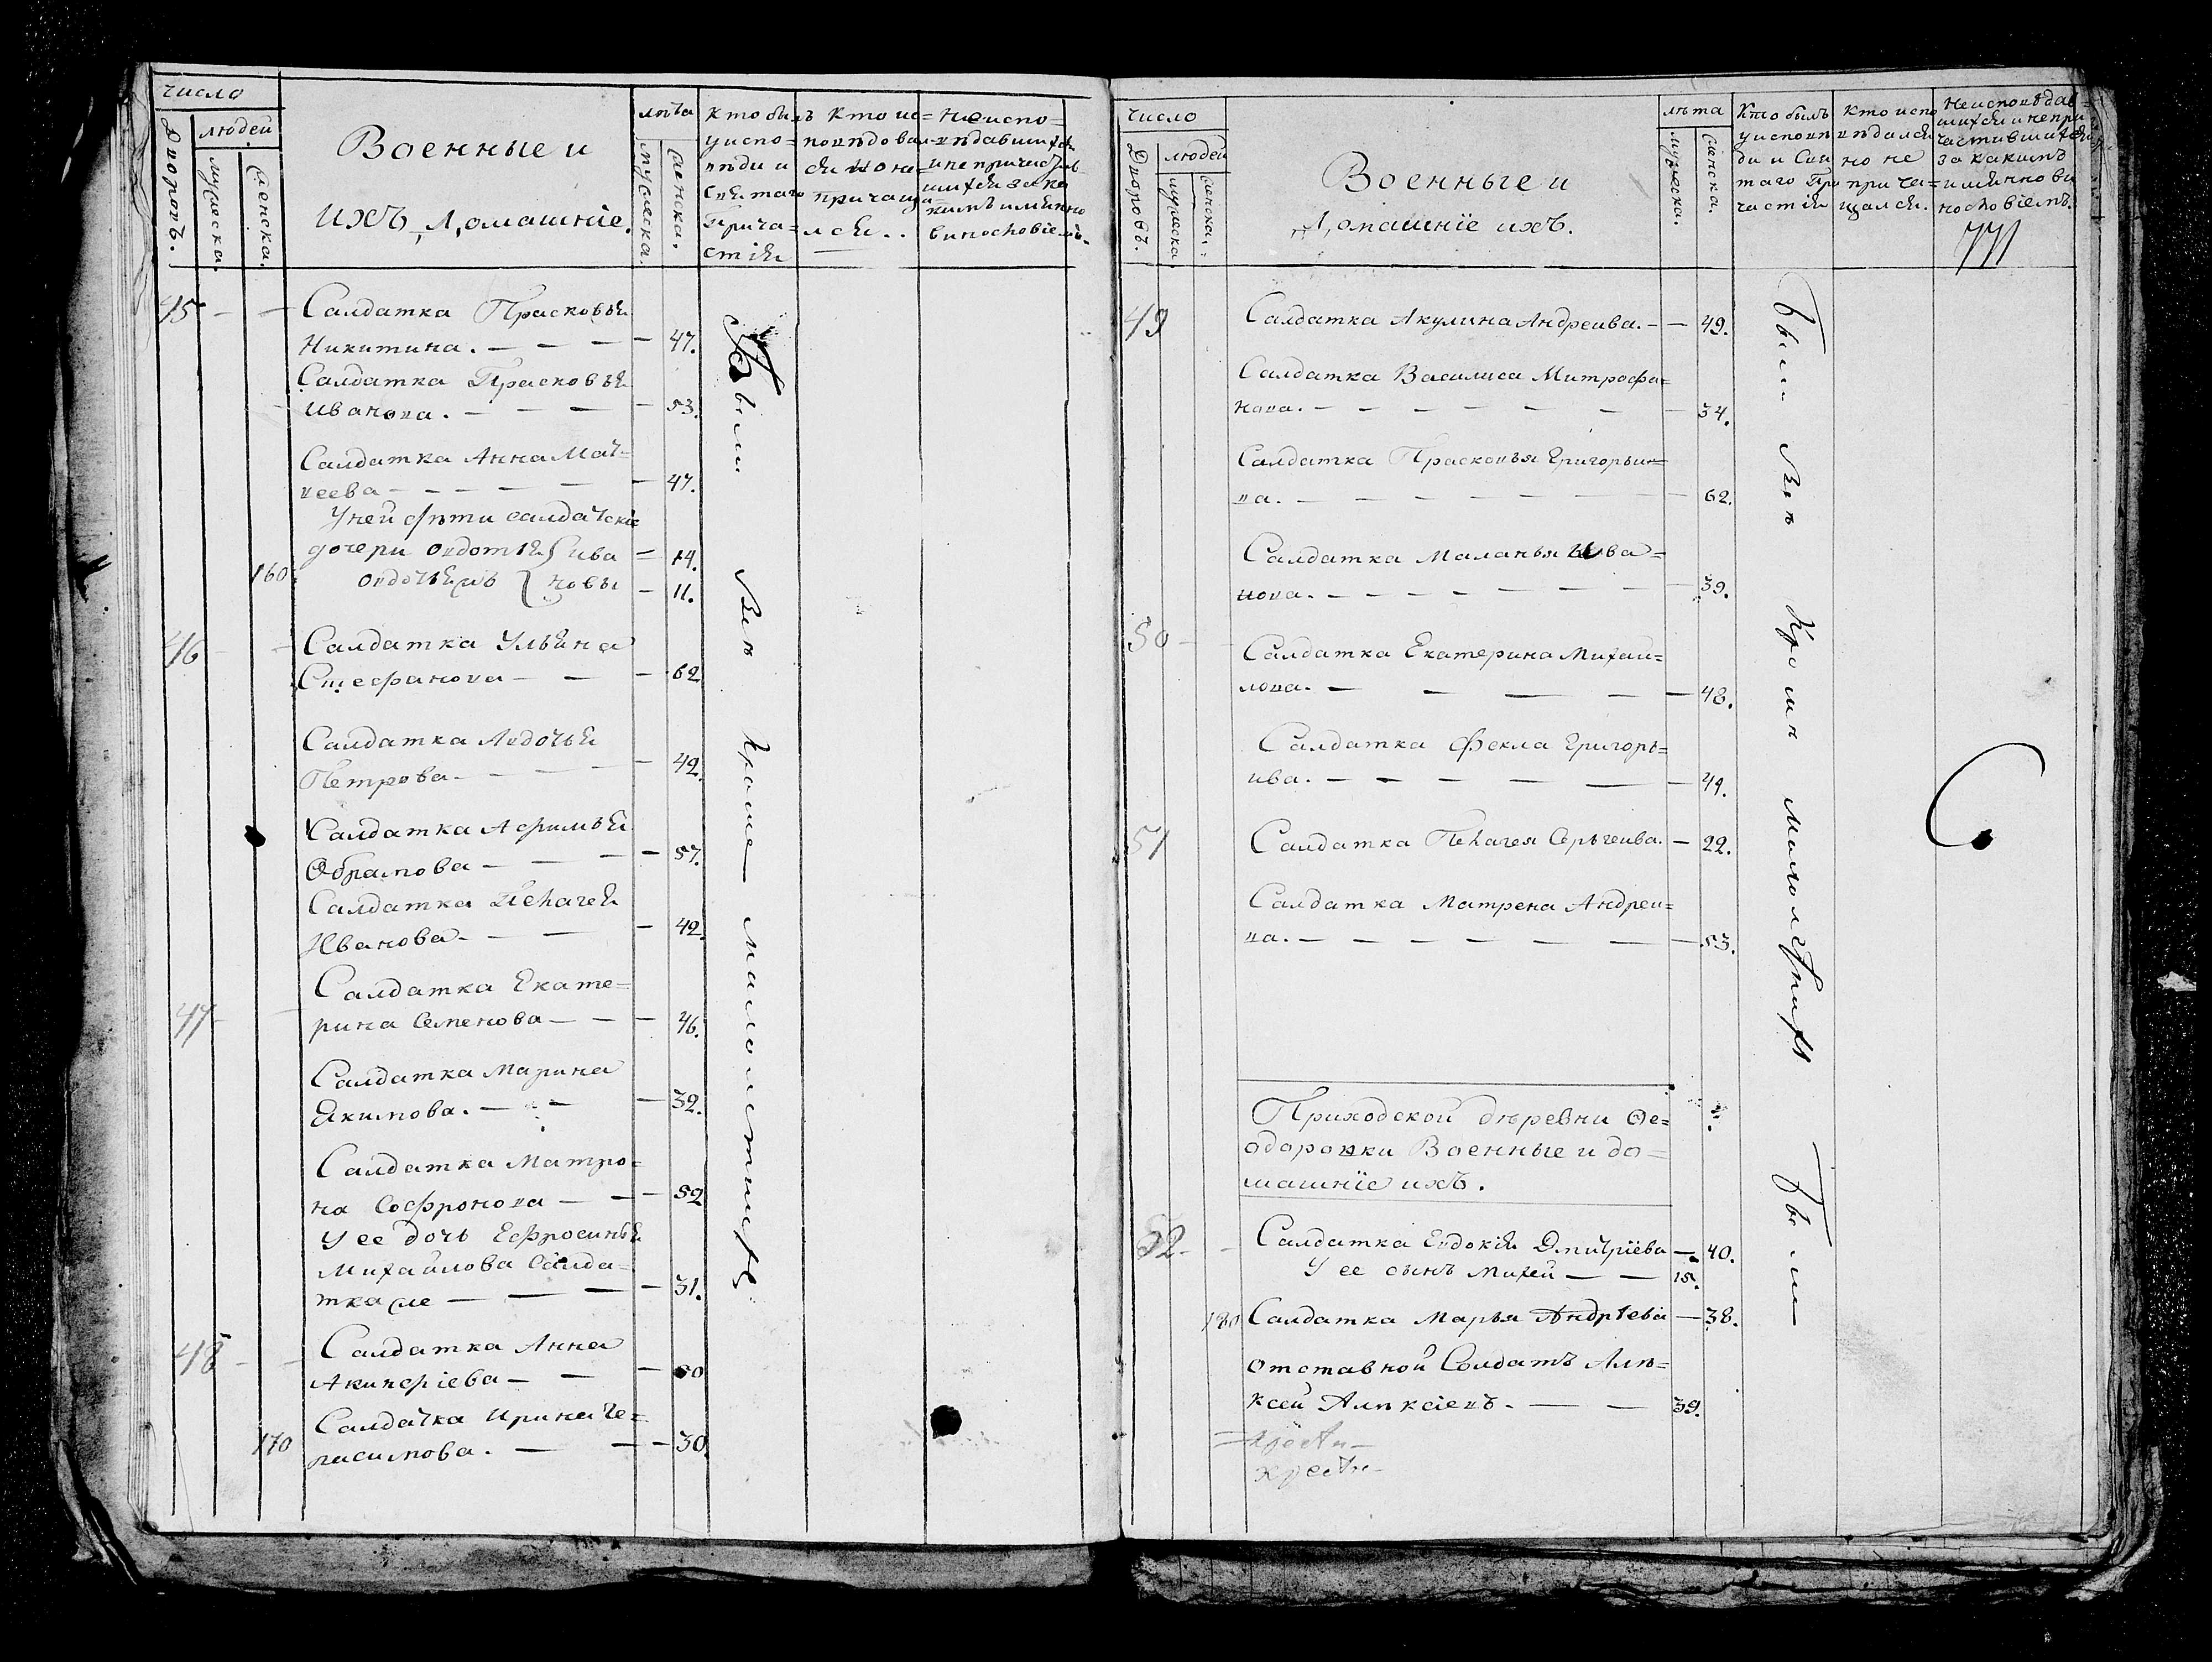 Число
людей
Дворовъ.
мужеска.
женска.
Военные и
ихъ Домашніе.
лѣта
мужеска.
женска.
Кто былъ
у испо=
вѣди и
святаго
Прича=
стія
Кто ис=
повѣдовал
ся но не
причащя
лся.
Неиспо=
вѣдавшихся
и не причаст
шихся за ка
кимъ имянно
винословіемъ.
45 Салдатка Прасковья
Никитина. 47.
Салдатка Прасковья
Иванова. 53.
Салдатка Анна Мат=
веева 47.
У ней дѣти салдатскіе
дочери Овдотья Ива 14.
160 Овдотья новы 11.
46 Салдатка Ульяна
Стефанова 62
Салдатка Авдотья
Петрова 42.
Салдатка Афимья
Обрамова 57.
Салдатка Пелагея
Иванова 42.
47 Салдатка Екате=
рина Семенова 46.
Салдатка Марина
Якимова. 32.
Салдатка Матро=
на Софронова 52
У ее дочь Ефросинья
Михайлова Салда=
тка же 31.
48 Салдатка Анна
Акинфіева 60
170 Салдатка Ирина Ге=
расимова. 30.
Были всѣ кроме малолетнихъ
Число
людей
Дворовъ.
мужеска.
женска.
Военные и
Домашніе ихъ.
лѣта
мужеска.
женска.
Кто былъ
у исповѣ
ди и Свя
таго При
частія
Кто испо
вѣдался
но не
прича=
щался.
Неисповѣдав=
шихся и непри
частившихся
за какимъ
имянно ви
нословіемъ.
49 Салдатка Акулина Андреива. 49.
Салдатка Василиса Митрофа=
нова. 34.
Салдатка Прасковья Григорьи=
ва. 62.
Салдатка Маланья Ива=
нова. 39.
50 Салдатка Екатерина Михаи=
лова. 48.
Салдатка Фекла Григорь=
ива. 44.
51 Салдатка Пелагея Серьгеива. 22.
Салдатка Матрена Андреи=
ва. 53.
Приходской дѣревни Ѳе=
одоровки Военные и до=
машніе ихъ.
52 Салдатка Евдокія Дмитріева 40.
У ее сынъ Михей 15.
180 Салдатка Марья Андріева 38.
Отставной Солдатъ Алѣ=
ксей Алѣксіевъ. 39.
Были всѣ кроми малолетнихъ
Были